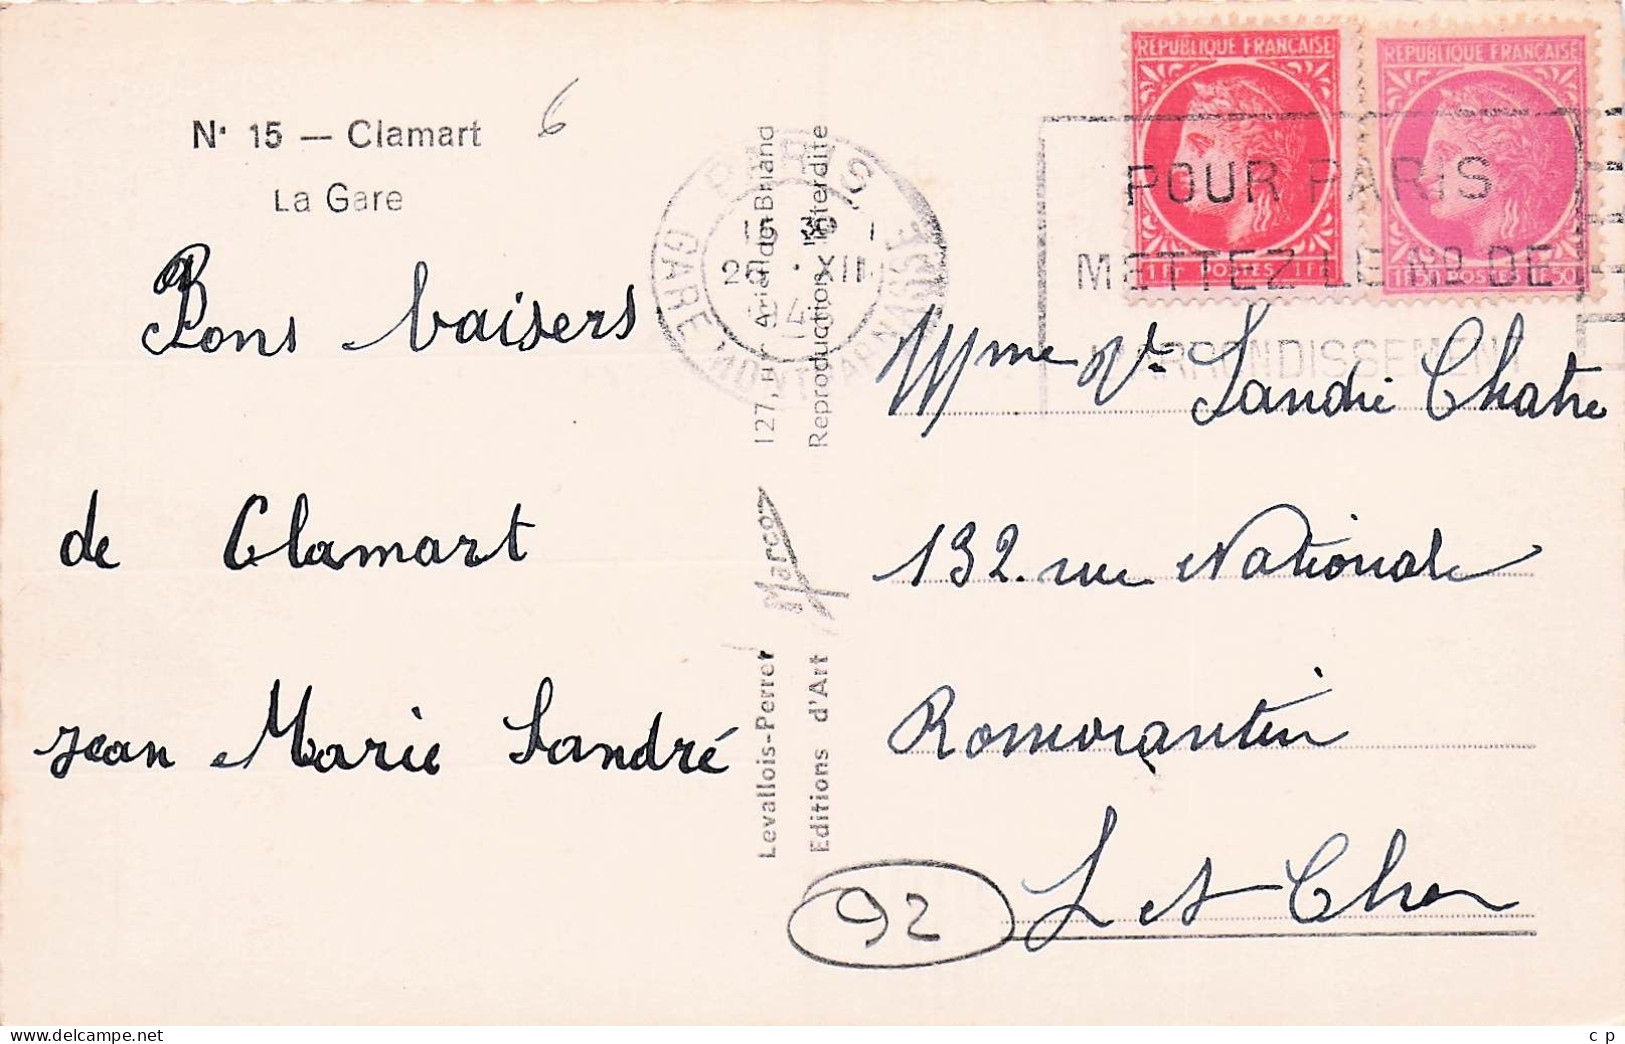 N° 15 — Clamart
La Gare
6
Bons baisers
de Clamart
Jean Marie Sandré
127, Aristide Briand
Reproduction Interdite
Marco
Levallois-Perret
Editions d'Art
PARIS
GARE MONTPARNASSE
XII
REPUBLIQUE FRANÇAISE
1Fr POSTES 1Fr
REPUBLIQUE FRANÇAISE
1F50 POSTES 1F50
POUR PARIS
METTEZ LE No DE
L'ARRONDISSEMENT
Mme Ve Sandré Chatre
132. rue Nationale
Romorantin
L et Cher
92
c p